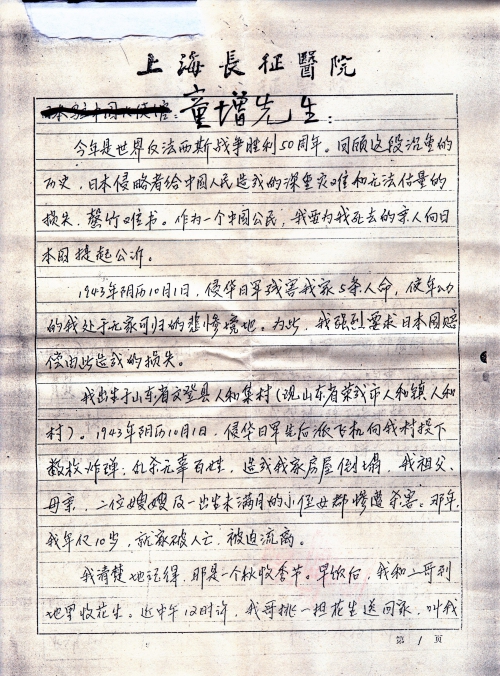 上海長征醫院
日本驻中国大使馆：童增先生：
今年是世界反法西斯战争胜利50周年。回顾这段沉重的
历史，日本侵略者给中国人民造成的深重灾难和无法估量的
损失，罄竹难书。作为一个中国公民，我要为我死去的亲人向日
本国提起公诉。
1943年阴历10月1日，侵华日军残害我家5条人命，使年幼
的我处于无家可归的悲惨境地。为此，我强烈要求日本国赔
偿由此造成的损失。
我出生于山东省文登县人和集村（现山东省荣成市人和镇人和
村）。1943年阴历10月1日，侵华日军先后派飞机向我村投下
数枚炸弹，轰杀无辜百姓，造成我家房屋倒塌，我祖父、
母亲，二位嫂嫂及一出生未满月的小侄女都惨遭杀害。那年，
我年仅10岁，就家破人亡，被迫流离。
我清楚地记得，那是一个秋收季节。早饭后，我和二哥到
地里收花生。近中午12时许，我哥挑一担花生送回家，叫我
第1页